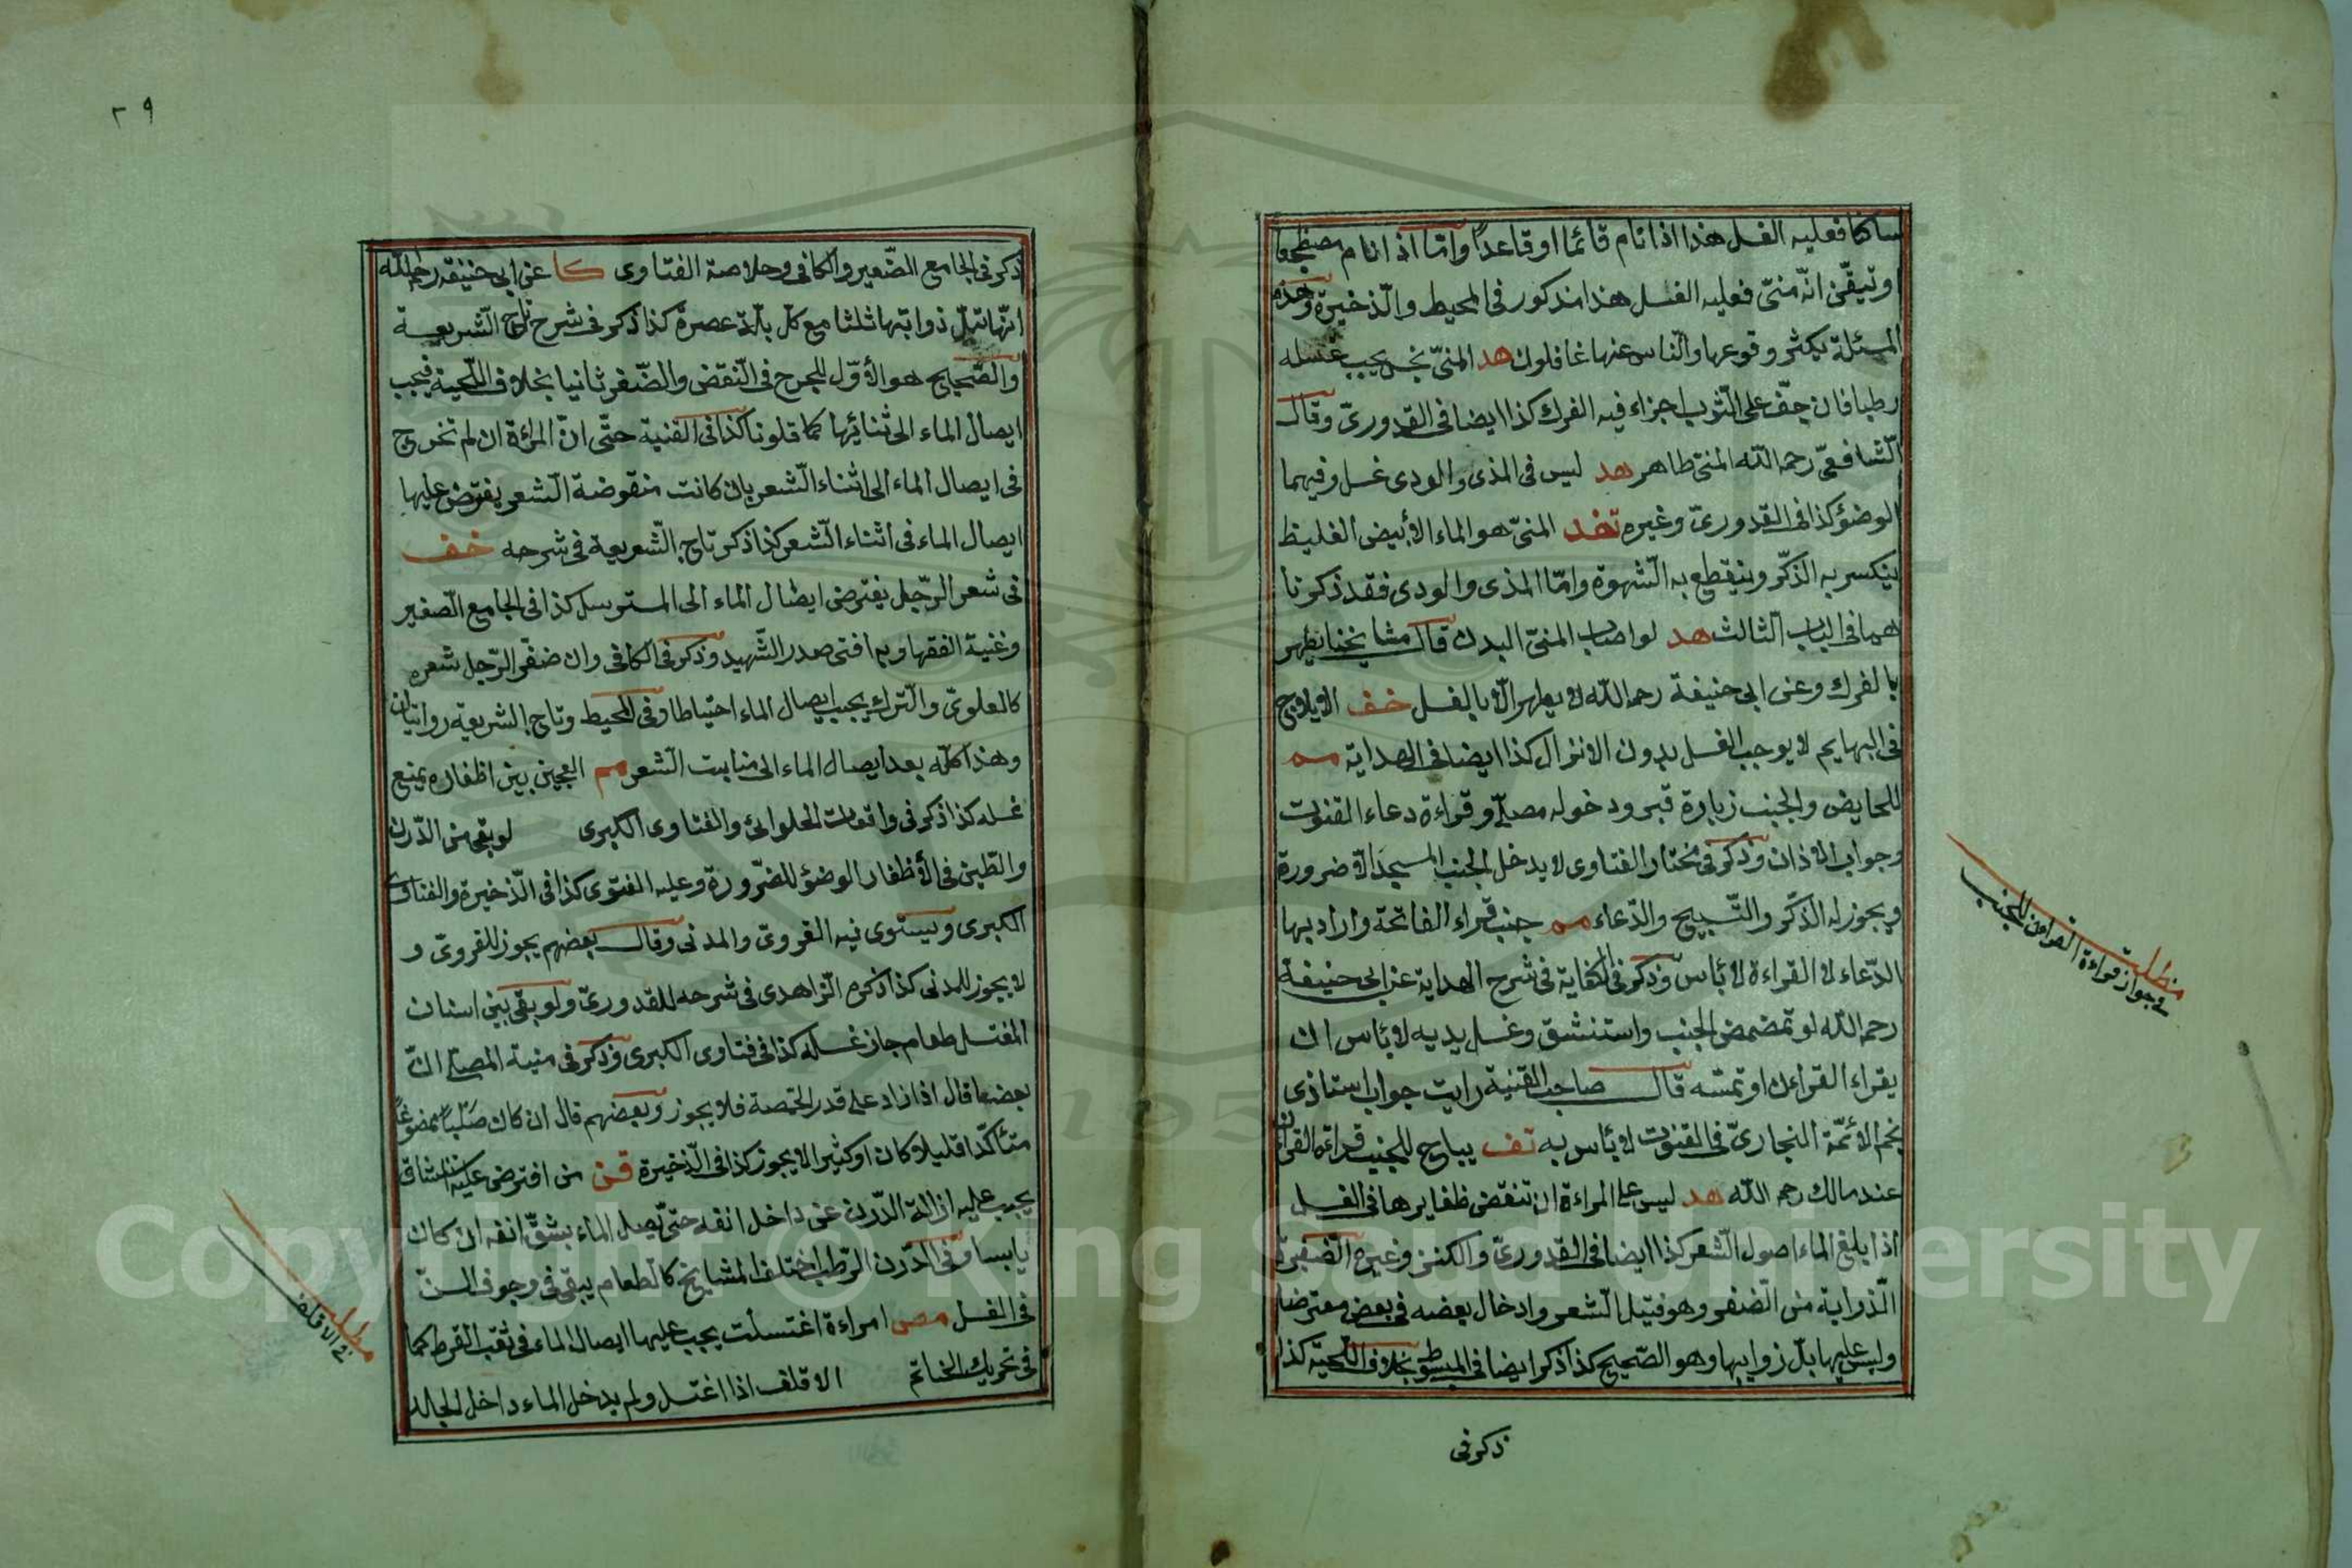 ساكنا فعليه الغسل هذا اذا نام قائما او قاعدا واما اذا نام مضطجعا
وتيقن انه منى فعليه الغسل هذا مذكور فى المحيط والذخيرة وهذه
المسئلة يكثر وقوعها والناس عنها غافلون هد المنى نجس يجب غسله
رطبا فان جف على الثوب اجزاء فيه الفرك كذا ايضا فى القدورى وقال
الشافعى رحمه الله المنى طاهر هد ليس فى المذى والودى غسل وفيهما
الوضؤ كذا فى القدورى وغيره تحفد المنى هو الماء الأبيض الغليظ
ينكسر به الذكر وينقطع به الشهوة واما المذى والودى فقد ذكرنا
هما فى الباب الثالث هد لو اصاب المنى البدن قال مشايخنا يطهر
بالفرك وعن ابى حنيفة رحمه الله لا يطهر الا بالغسل خف الايلاج
فى البهايم لا يوجب الغسل بدون الانزال كذا ايضا فى الهداية مم
للحايض والجنب زيارة قبر ودخوله مصلى وقراءة دعاء القنوت
وجواب الاذان وذكر فى مختار الفتاوى لا يدخل الجنب المسجد الا ضرورة
ويجوز له الذكر والتسبيح والدعاء مم جنب قراء الفاتحة واراد بها
الدعاء لا القراءة لا بأس وذكر فى الكفاية فى شرح الهداية عن ابى حنيفة
رحمه الله لو تمضمض الجنب واستنشق وغسل يديه لا بأس ان
يقراء القراءن او تمسه قال صاحب القنية رايت جواب استاذى
نجم الأئمة البخارى فى القنوت لا بأس به تف يباح للجنب قراءة القرآن
عند مالك رحمه الله هد ليس على المراءة ان تنقض ظفايرها فى الغسل
اذا بلغ الماء اصول الشعر كذا ايضا فى القدورى والكنز وغيره الضفيرة
الذواية من الضفر وهو فتيل الشعر وادخال بعضه فى بعض معترضا
وليس عليها بل زوايبها وهو الصحيح كذا ذكر ايضا فى المبسوط بخلاف اللحية كذا
ذكر فى
مطلب
فى جواز قراءة القراءن للجنب
٢٩
ذكر فى الجامع الصغير والكافى وخلاصة الفتاوى كا عن ابى حنيفة رحمه الله
انها تبل ذوائبها ثلثا مع كل بلة عصرة كذا ذكر فى شرح تاج الشريعة
والصحيح هو الأول للجرح فى النقض والضفر ثانيا بخلاف اللحية فيجب
ايصال الماء الى ثنائها كما قلونا كذا فى القنية حتى ان المرأة ان لم تخرج
فى ايصال الماء الى اثناء الشعر بان كانت منقوضة الشعر يفترض عليها
ايصال الماء فى اثناء الشعر كذا ذكر تاج الشريعة فى شرحه خف
فى شعر الرجل يفترض ايصال الماء الى المسترسل كذا فى الجامع الصغير
وغنية الفقها وبه افتى صدر الشهيد وذكر فى الكافى وان ضفر الرجل شعره
كالعلوى والترك يجب ايصال الماء احتياطا وفى المحيط وتاج الشريعة روايتان
وهذا كله بعد ايصال الماء الى منابت الشعر مم العجين بين اظفاره يمنع
غسله كذا ذكر فى واقعات الحلوائى والفتاوى الكبرى لو بقى من الدرن
والطين فى الأظفار الوضؤ للضرورة وعليه الفتوى كذا فى الذخيرة والفتاوى
الكبرى ويستوى فيه القروى والمدنى وقال بعضهم يجوز للقروى و
لا يجوز للمدنى كذا ذكره الزاهدى فى شرحه للقدورى ولو بقى بين اسنان
المغتسل طعام جاز غسله كذا فى فتاوى الكبرى وذكر فى منية المصلى ان
بعضها قال اذا زاد على قدر الحمصة فلا يجوز وبعضهم قال ان كان صلبا ممضوغا
متأكدا قليلا كان او كثيرا لا يجوز كذا فى الذخيرة قن من افترض عليه
يجب عليه ازالة الدرن عن داخل انفه حتى يصل الماء بشق انفه ان كان
يابسا وفى الدرن الرطب اختلف المشايخ كالطعام يبقى فى وجوف السن
فى الغسل مص امراءة اغتسلت يجب عليها ايصال الماء فى ثقب القرط كما
فى تحريك الخاتم الاقلف اذا اغتسل ولم يدخل الماء داخل الجالد
مطلب
فى الاقلف
Copyright © King Saud University